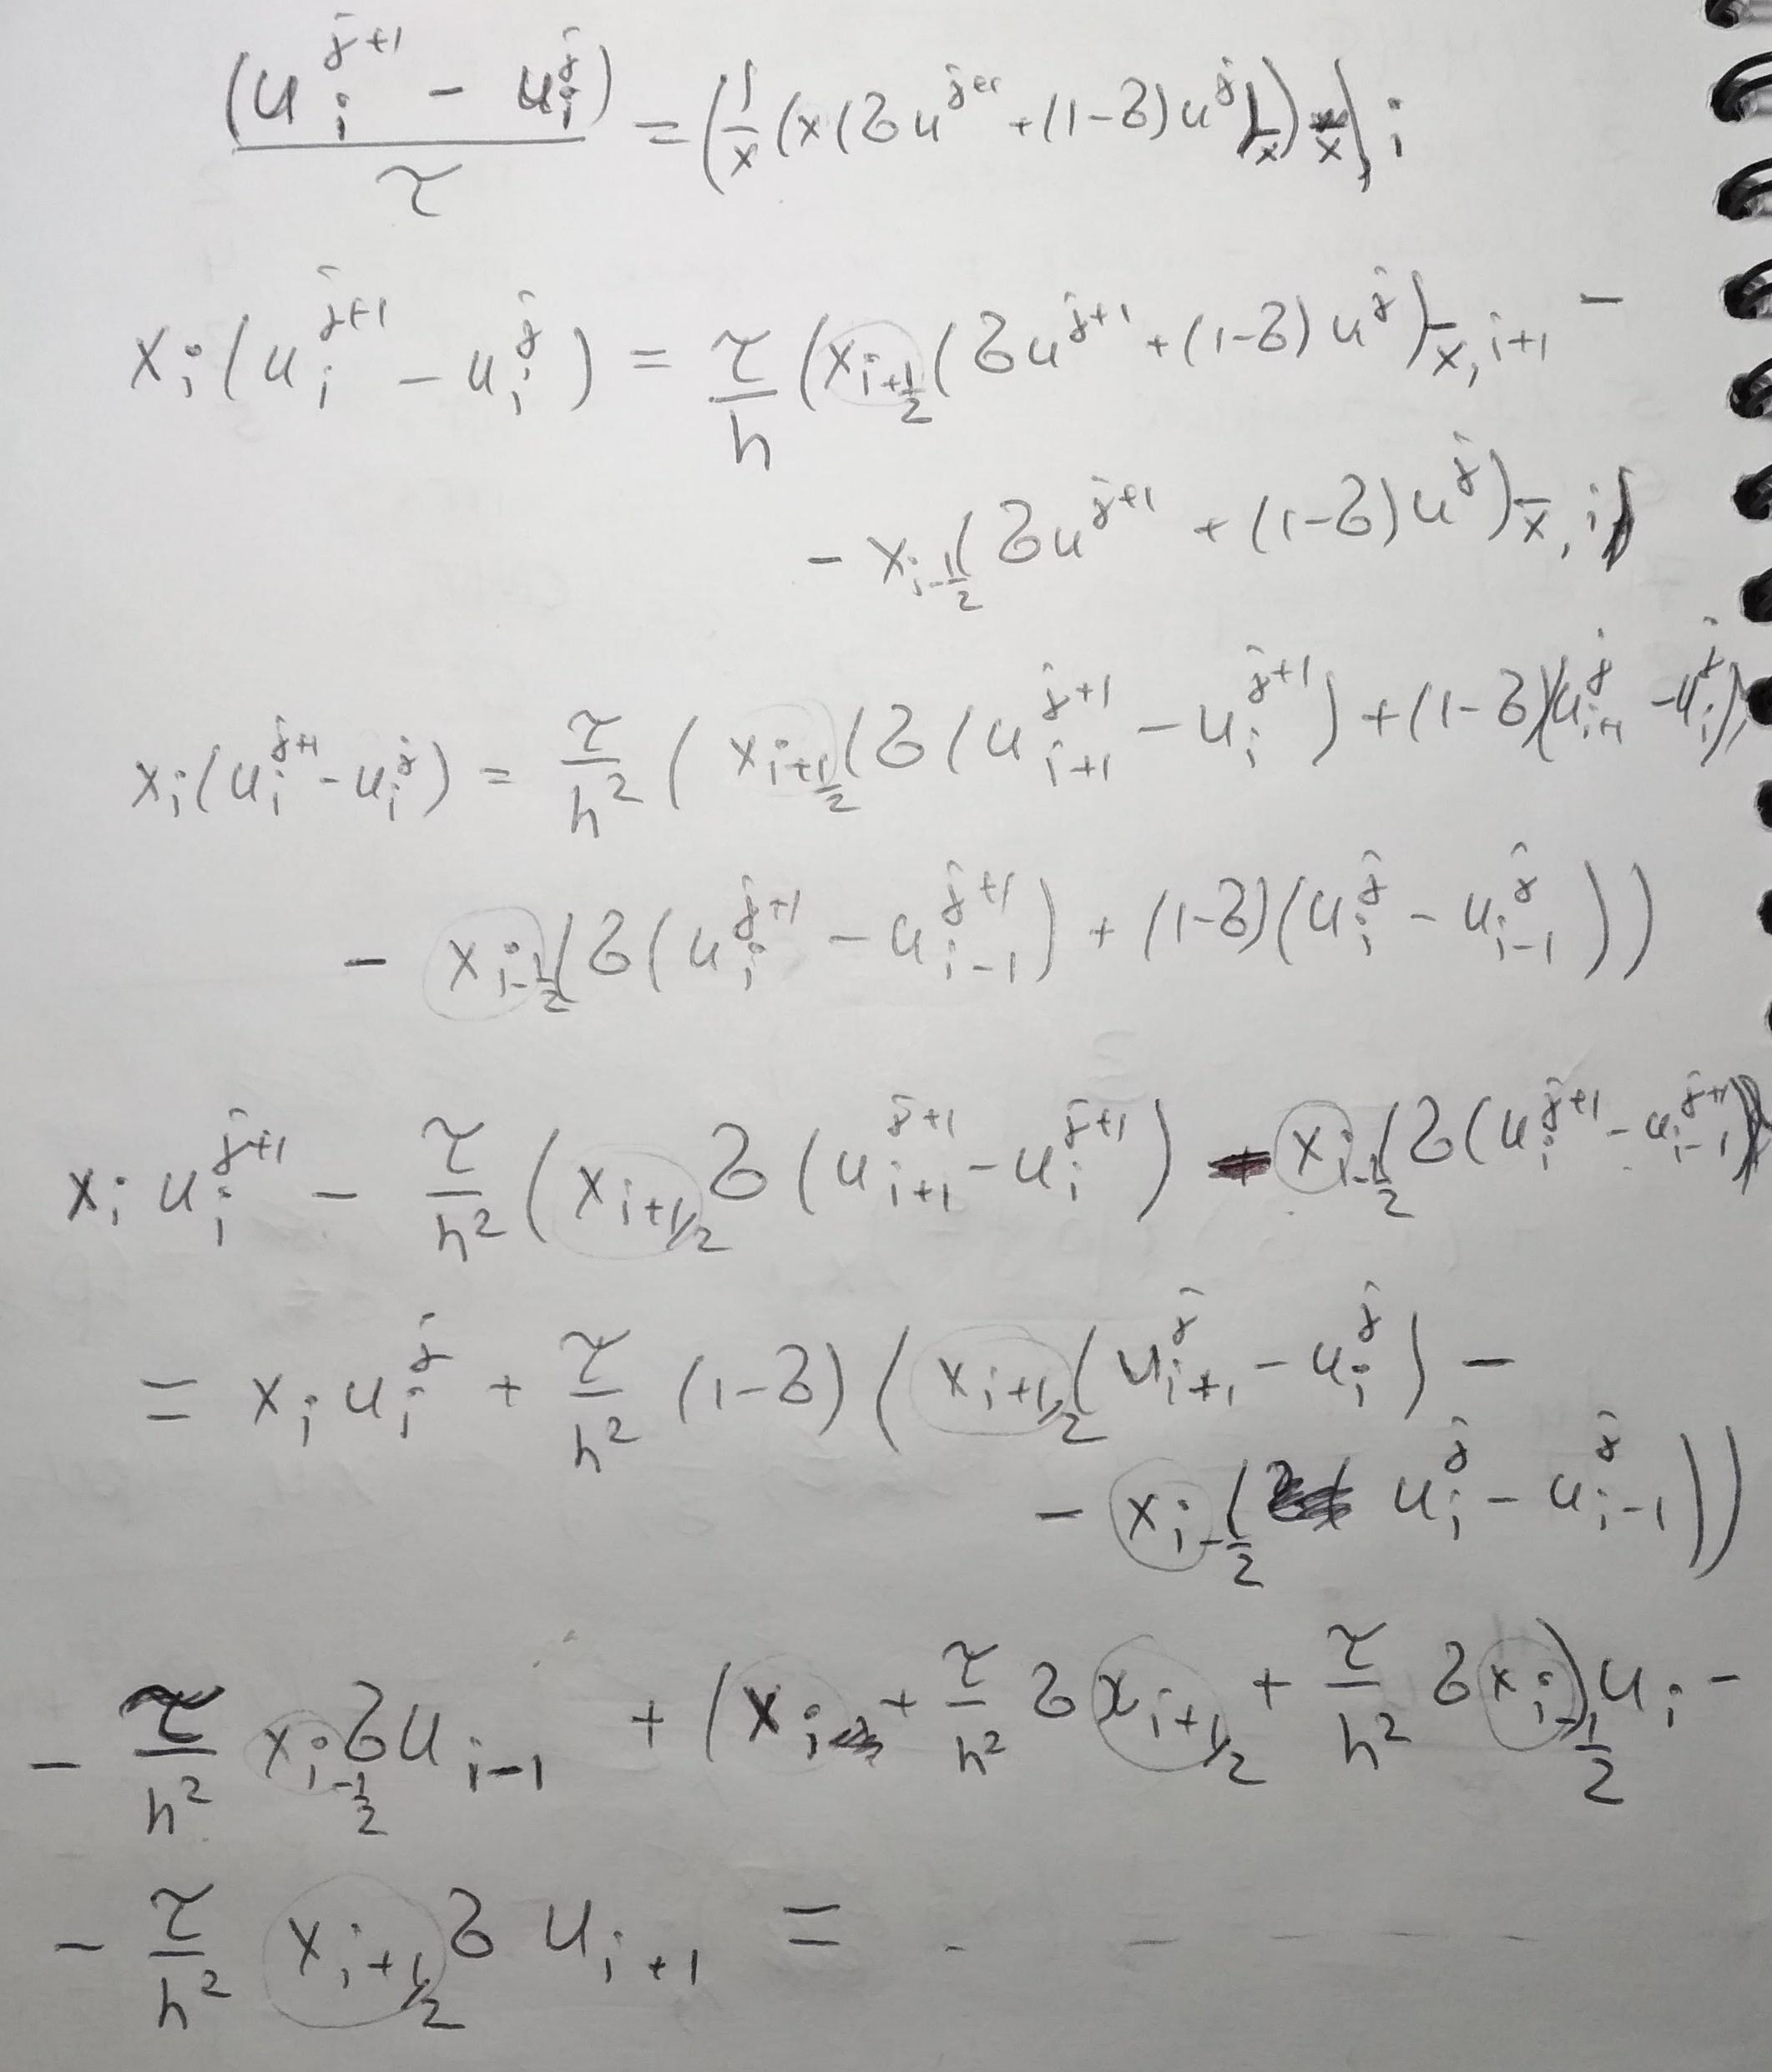 (u_i^{j+1} - u_i^j) / τ = (1/x (x (σ u^{j+1} + (1-σ) u^j)_{x̄})_x)_i
x_i (u_i^{j+1} - u_i^j) = τ/h (x_{i+1/2} (σ u^{j+1} + (1-σ) u^j)_{x̄, i+1} -
- x_{i-1/2} (σ u^{j+1} + (1-σ) u^j)_{x̄, i})
x_i (u_i^{j+1} - u_i^j) = τ/h² (x_{i+1/2} (σ (u_{i+1}^{j+1} - u_i^{j+1}) + (1-σ)(u_{i+1}^j - u_i^j))
- x_{i-1/2} (σ (u_i^{j+1} - u_{i-1}^{j+1}) + (1-σ)(u_i^j - u_{i-1}^j))
x_i u_i^{j+1} - τ/h² (x_{i+1/2} σ (u_{i+1}^{j+1} - u_i^{j+1}) - x_{i-1/2} (σ (u_i^{j+1} - u_{i-1}^{j+1}))
= x_i u_i^j + τ/h² (1-σ) (x_{i+1/2} (u_{i+1}^j - u_i^j) -
- x_{i-1/2} (u_i^j - u_{i-1}^j))
- τ/h² x_{i-1/2} σ u_{i-1} + (x_i + τ/h² σ x_{i+1/2} + τ/h² σ x_{i-1/2}) u_i -
- τ/h² x_{i+1/2} σ u_{i+1} = - - - - -